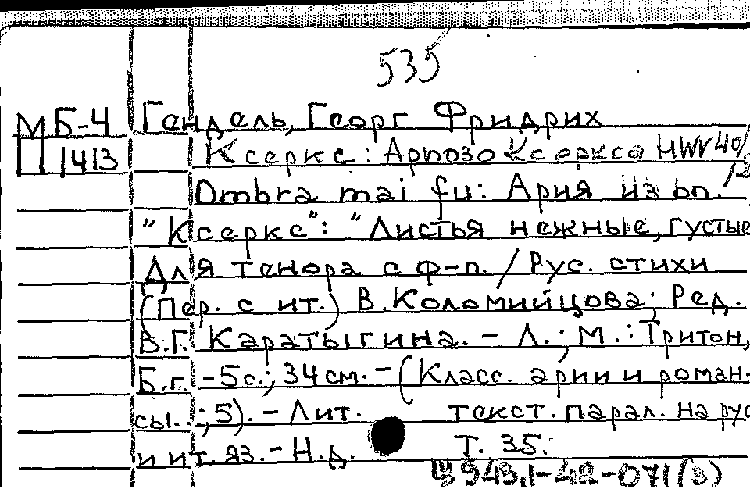 535
МБ-4 Гендель, Георг Фридрих
П 1413 Ксеркс: Ариозо Ксеркса HWV 40/
Ombra mai fu: Ария из оп.
"Ксеркс": "Листья нежные, густые
Для тенора с ф-п. / Рус. стихи
(Пер. с ит.) В. Коломийцова; Ред.
В.Г. Каратыгина. - Л.; М.: Тритон,
Б.г. - 5 с.; 34 см. - (Класс. арии и роман-
сы..; 5). - Лит. текст. парал. на рус
и ит. яз. - Н.д. Т. 35.
Щ 943.1-42-071(3)